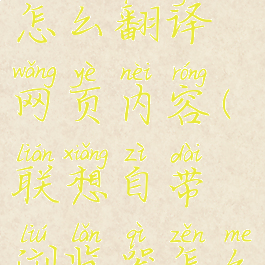 怎么翻译
wǎng yè nèi róng
网页内容(
lián xiǎng zì dài
联想自带
liú lǎn qì zěn me
浏览器怎么